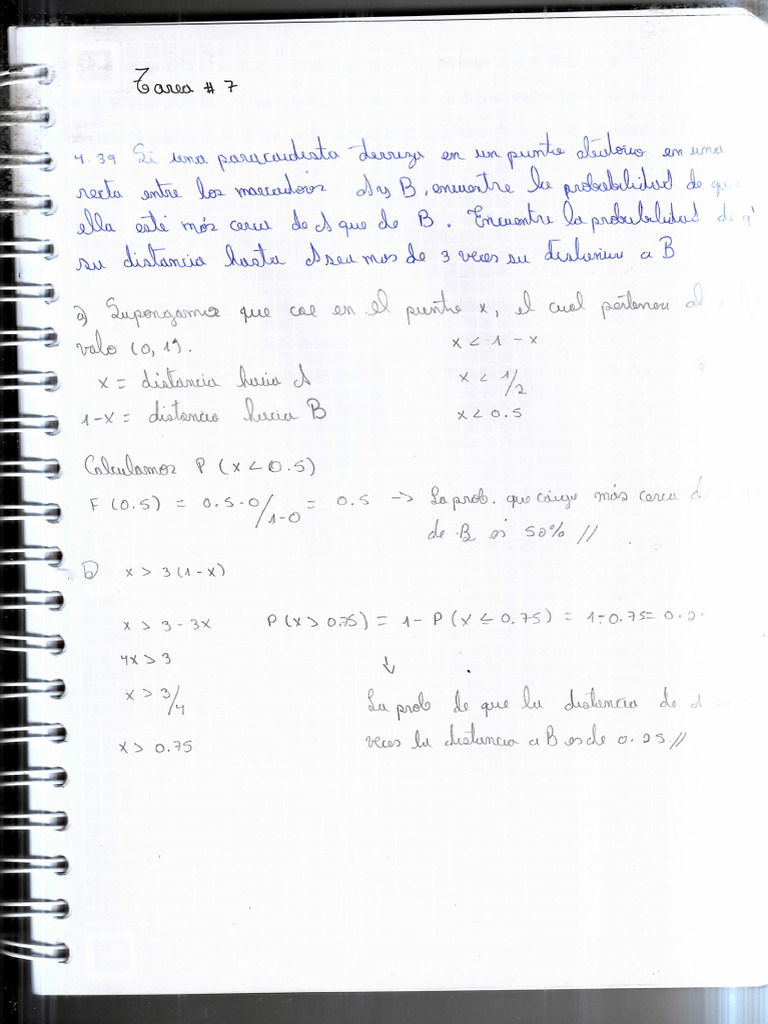 Tarea # 7
4.39 Si una paracaidista aterriza en un punto aleatorio en una
recta entre los marcadores A y B, encuentre la probabilidad de que
ella esté más cerca de A que de B. Encuentre la probabilidad de q'
su distancia hasta A sea mas de 3 veces su distancia a B
a) Supongamos que cae en el punto x, el cual pertenece al
valo (0,1).
x < 1 - x
x = distancia hacia A
x < 1/2
1-x = distancia hacia B
x < 0.5
Calculamos P (x < 0.5)
F (0.5) = 0.5-0/1-0 = 0.5 → La prob. que caiga más cerca d
de B es 50% //
b) x > 3(1-x)
x > 3 - 3x P(x > 0.75) = 1 - P(x ≤ 0.75) = 1-0.75 = 0.2
4x > 3
↓
x > 3/4
La prob de que la distancia de A
x > 0.75
veces la distancia a B es de 0.25 //